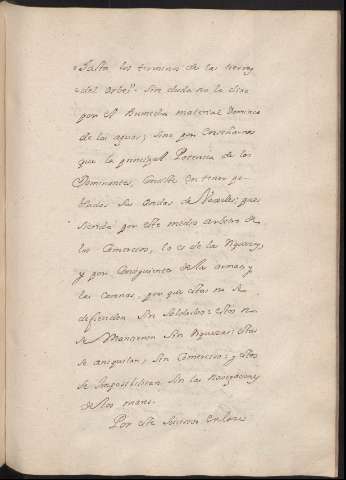 "Hasta los terminos de las tierras
"del orbe". Sin duda no lo dixo
por el material Dominio
de las aguas; sino por enseñarnos
que la principal Potencia de los
Dominantes, consiste en tener po-
bladas sus ondas de Vaxeles; que
siendo por este medio arbitro de
los Comercios, lo es de las riquezas,
y por consiguiente de las armas, y
las coronas, por que estas no se
defienden sin Soldados: estos no
se Mantienen sin riquezas: estas
se aniquilan, sin Comercios: y estos
se imposibilitan sin las navegaciones
de los mares.
Por este